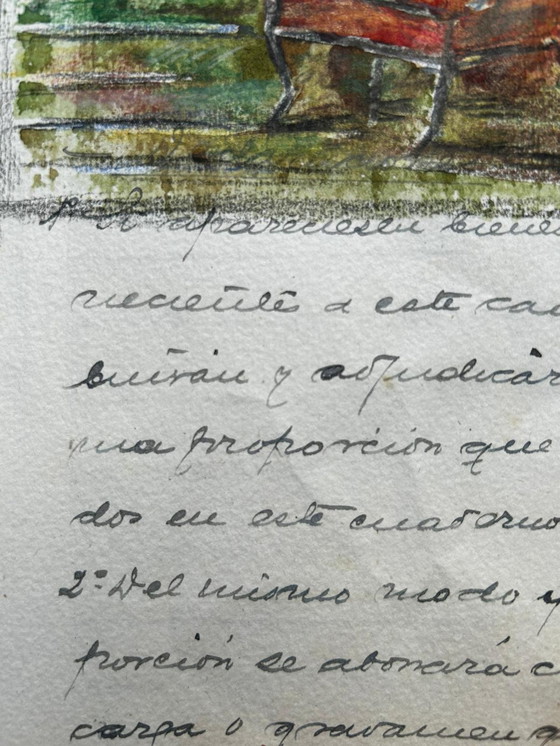 1ª Si apareciesen biene
necientes a este cau
buirán y adjudicar
misma proporción que
dos en este cuaderno
2ª Del mismo modo y
porción se abonará c
carga o gravamen q